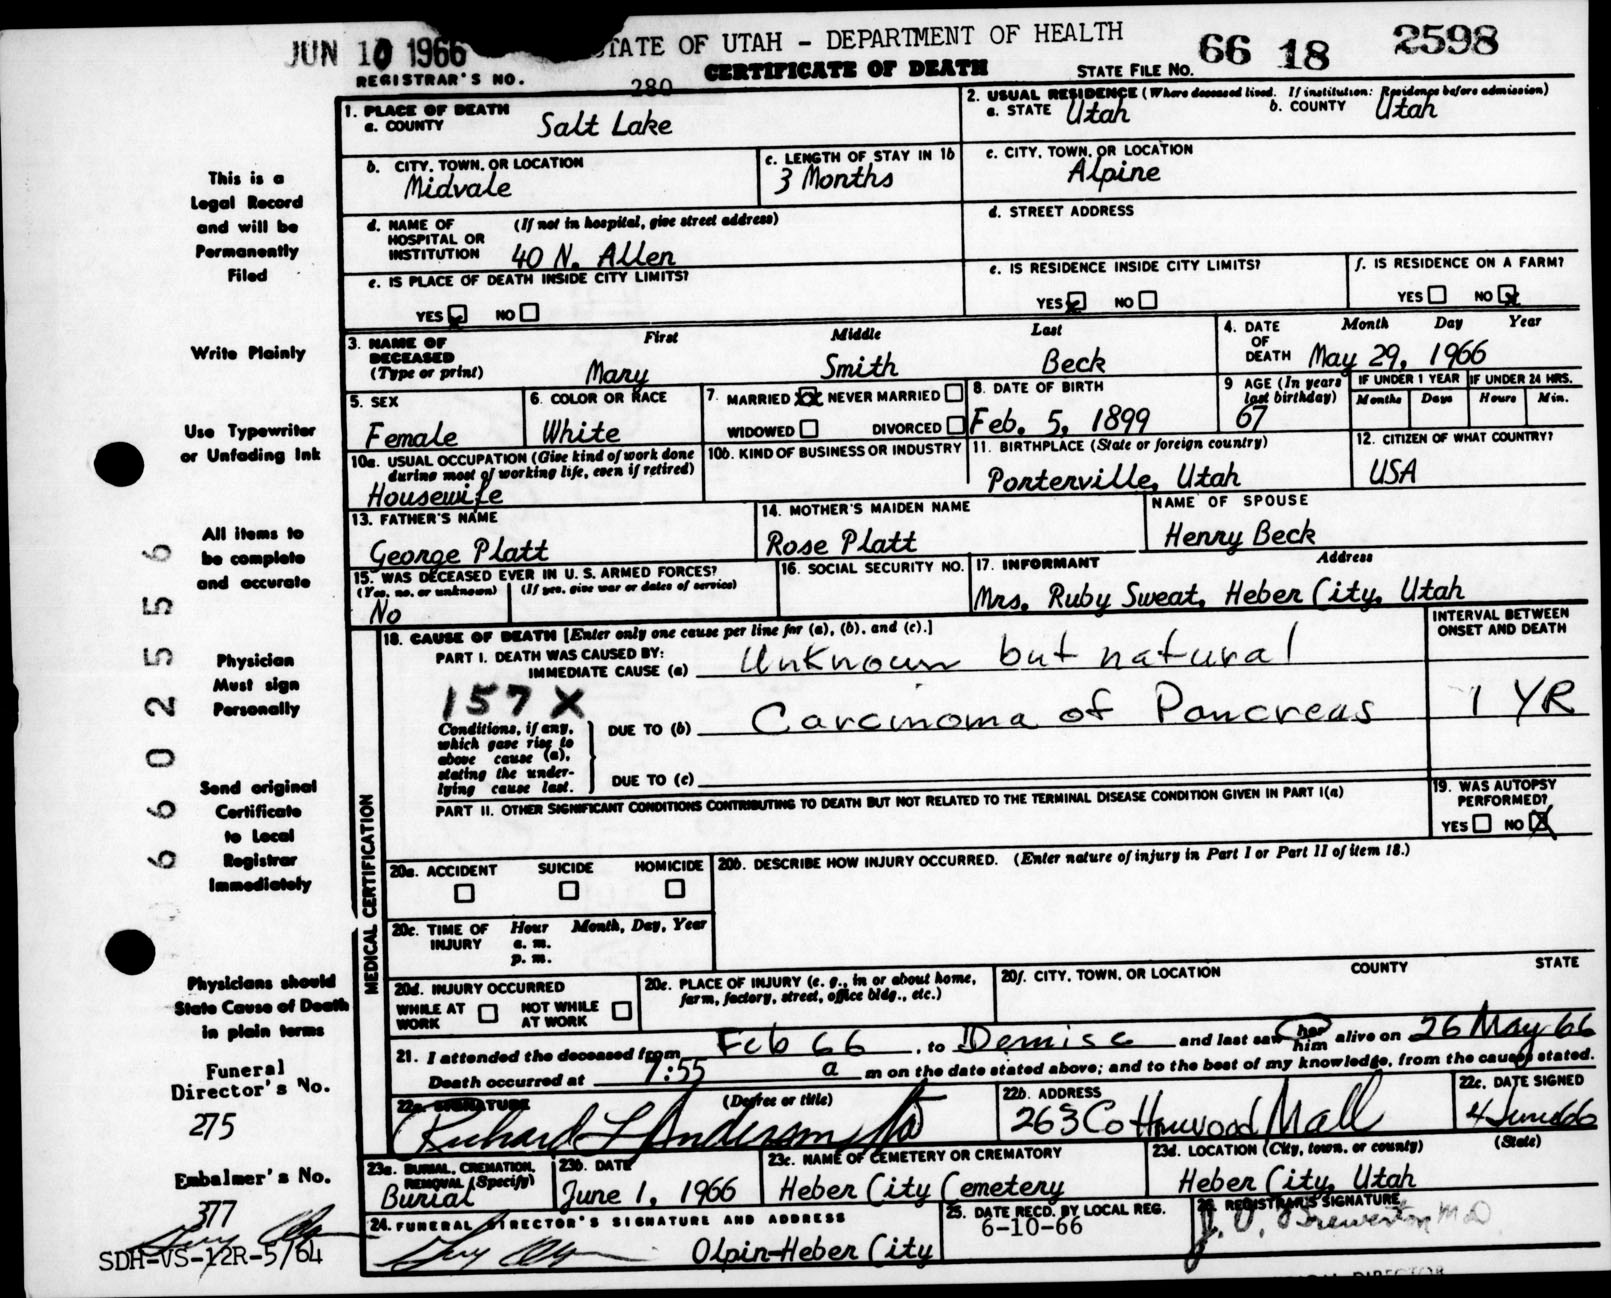 JUN 10 1966
STATE OF UTAH - DEPARTMENT OF HEALTH
CERTIFICATE OF DEATH
REGISTRAR'S NO. 280
STATE FILE NO. 66 18 2598
1. PLACE OF DEATH
a. COUNTY Salt Lake
2. USUAL RESIDENCE (Where deceased lived. If institution: Residence before admission)
a. STATE Utah b. COUNTY Utah
b. CITY, TOWN, OR LOCATION Midvale
c. LENGTH OF STAY IN 1b 3 Months
c. CITY, TOWN, OR LOCATION Alpine
d. NAME OF HOSPITAL OR INSTITUTION (If not in hospital, give street address) 40 N. Allen
d. STREET ADDRESS
e. IS PLACE OF DEATH INSIDE CITY LIMITS?
YES NO
e. IS RESIDENCE INSIDE CITY LIMITS?
YES NO
f. IS RESIDENCE ON A FARM?
YES NO
3. NAME OF DECEASED (Type or print)
First Middle Last
Mary Smith Beck
4. DATE OF DEATH Month Day Year
May 29, 1966
5. SEX Female
6. COLOR OR RACE White
7. MARRIED NEVER MARRIED
WIDOWED DIVORCED
8. DATE OF BIRTH Feb. 5, 1899
9 AGE (In years last birthday) 67
IF UNDER 1 YEAR Months Days
IF UNDER 24 HRS. Hours Min.
10a. USUAL OCCUPATION (Give kind of work done during most of working life, even if retired)
Housewife
10b. KIND OF BUSINESS OR INDUSTRY
11. BIRTHPLACE (State or foreign country)
Porterville, Utah
12. CITIZEN OF WHAT COUNTRY?
USA
13. FATHER'S NAME
George Platt
14. MOTHER'S MAIDEN NAME
Rose Platt
NAME OF SPOUSE
Henry Beck
15. WAS DECEASED EVER IN U. S. ARMED FORCES?
(Yes, no, or unknown) (If yes, give war or dates of service)
No
16. SOCIAL SECURITY NO.
17. INFORMANT Address
Mrs. Ruby Sweat, Heber City, Utah
MEDICAL CERTIFICATION
18. CAUSE OF DEATH [Enter only one cause per line for (a), (b), and (c).]
INTERVAL BETWEEN ONSET AND DEATH
PART I. DEATH WAS CAUSED BY:
IMMEDIATE CAUSE (a) Unknown but natural
157 X
Conditions, if any, which gave rise to above cause (a), stating the underlying cause last.
DUE TO (b) Carcinoma of Pancreas 1 YR
DUE TO (c)
PART II. OTHER SIGNIFICANT CONDITIONS CONTRIBUTING TO DEATH BUT NOT RELATED TO THE TERMINAL DISEASE CONDITION GIVEN IN PART I(a)
19. WAS AUTOPSY PERFORMED?
YES NO
20a. ACCIDENT SUICIDE HOMICIDE
20b. DESCRIBE HOW INJURY OCCURRED. (Enter nature of injury in Part I or Part II of item 18.)
20c. TIME OF INJURY Hour Month, Day, Year
a. m.
p. m.
20d. INJURY OCCURRED
WHILE AT WORK NOT WHILE AT WORK
20e. PLACE OF INJURY (e. g., in or about home, farm, factory, street, office bldg., etc.)
20f. CITY, TOWN, OR LOCATION COUNTY STATE
21. I attended the deceased from Feb 66, to Demise and last saw her him alive on 26 May 66
Death occurred at 7:55 a m on the date stated above; and to the best of my knowledge, from the causes stated.
22a. SIGNATURE (Degree or title)
Richard L Anderson
22b. ADDRESS
263 Cottonwood Mall
22c. DATE SIGNED
4 June 66
23a. BURIAL, CREMATION, REMOVAL (Specify)
Burial
23b. DATE
June 1, 1966
23c. NAME OF CEMETERY OR CREMATORY
Heber City Cemetery
23d. LOCATION (City, town, or county) (State)
Heber City, Utah
24. FUNERAL DIRECTOR'S SIGNATURE AND ADDRESS
Olpin-Heber City
25. DATE RECD. BY LOCAL REG.
6-10-66
26. REGISTRAR'S SIGNATURE
This is a
Legal Record
and will be
Permanently
Filed
Write Plainly
Use Typewriter
or Unfading Ink
All items to
be complete
and accurate
Physician
Must sign
Personally
Send original
Certificate
to Local
Registrar
Immediately
Physicians should
State Cause of Death
in plain terms
Funeral
Director's No.
275
Embalmer's No.
377
SDH-VS-12R-5/64
66025556